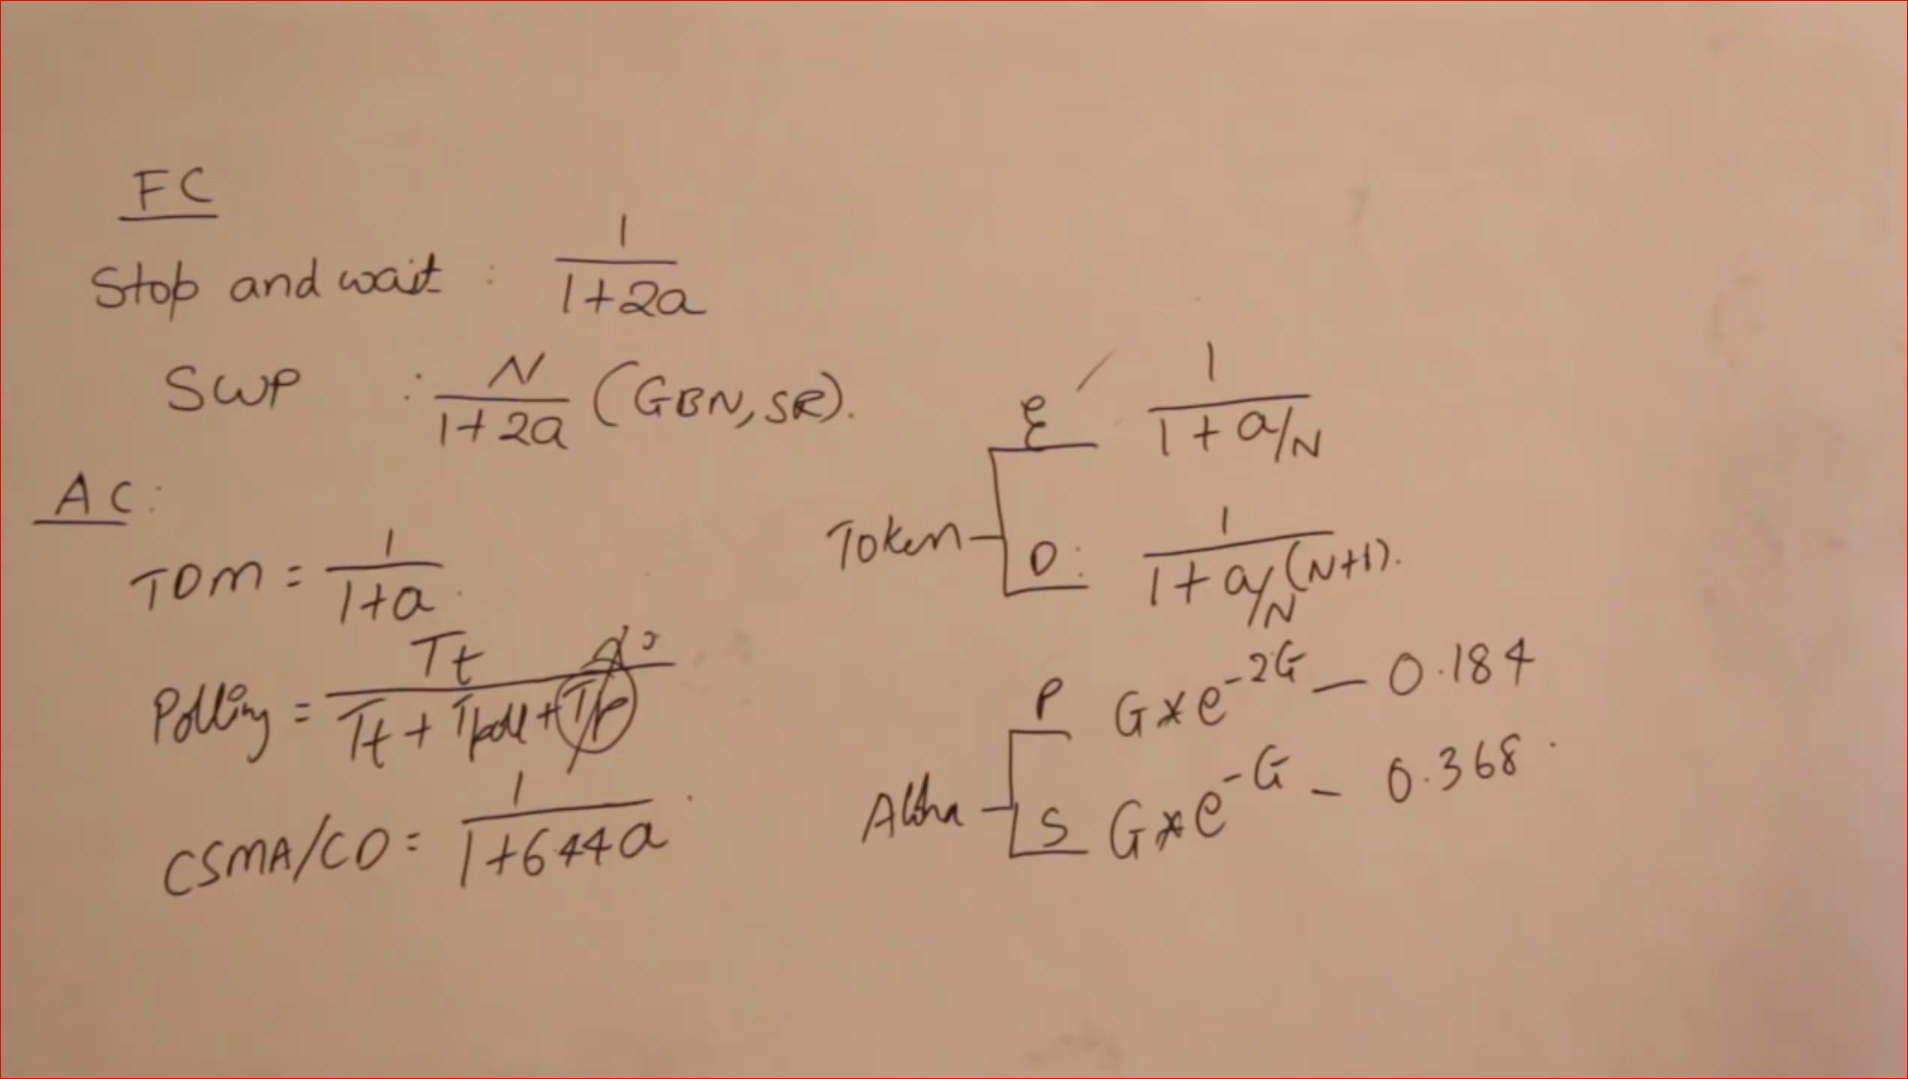 FC
Stop and wait : 1/(1+2a)
SWP : N/(1+2a) (GBN, SR).
AC:
TDM = 1/(1+a)
Polling = Tt/(Tt + Tpoll + Tp)
CSMA/CD = 1/(1+6.44a)
Token
E 1/(1+a/N)
D: 1/(1+a/N(N+1)).
P G*e^-2G — 0.184
S G*e^-G — 0.368.